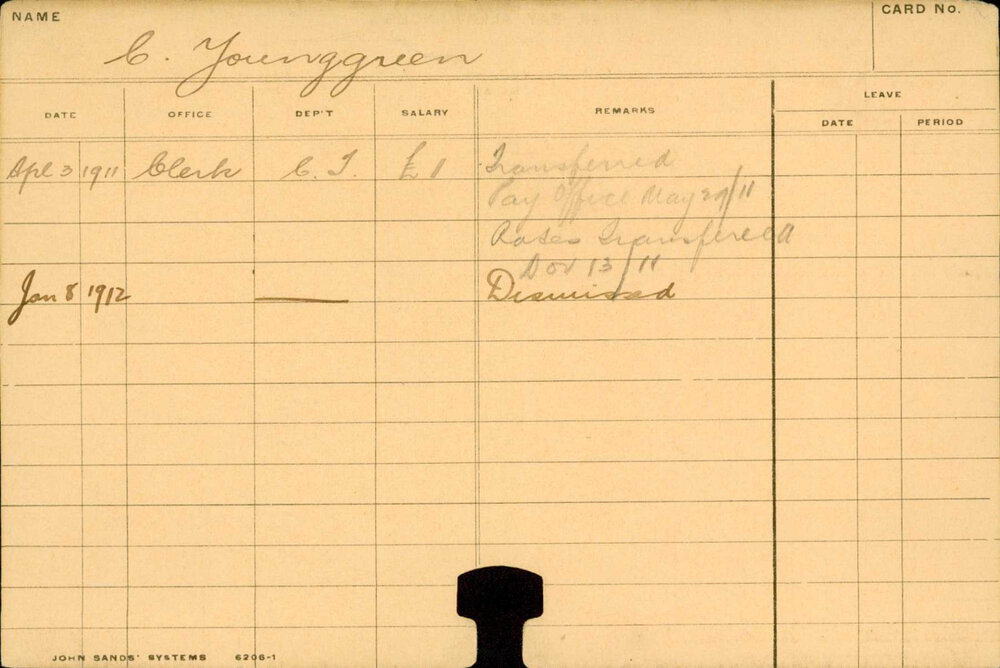 NAME
CARD No.
C. Younggreen
LEAVE
DATE OFFICE DEP'T SALARY REMARKS DATE PERIOD
Apl 3 1911 Clerk C. T. £1 Transferred
Pay Office May 29/11
Rates Transferred
Nov 13/11
Jan 8 1912 — Dismissed
JOHN SANDS' SYSTEMS 6206-1